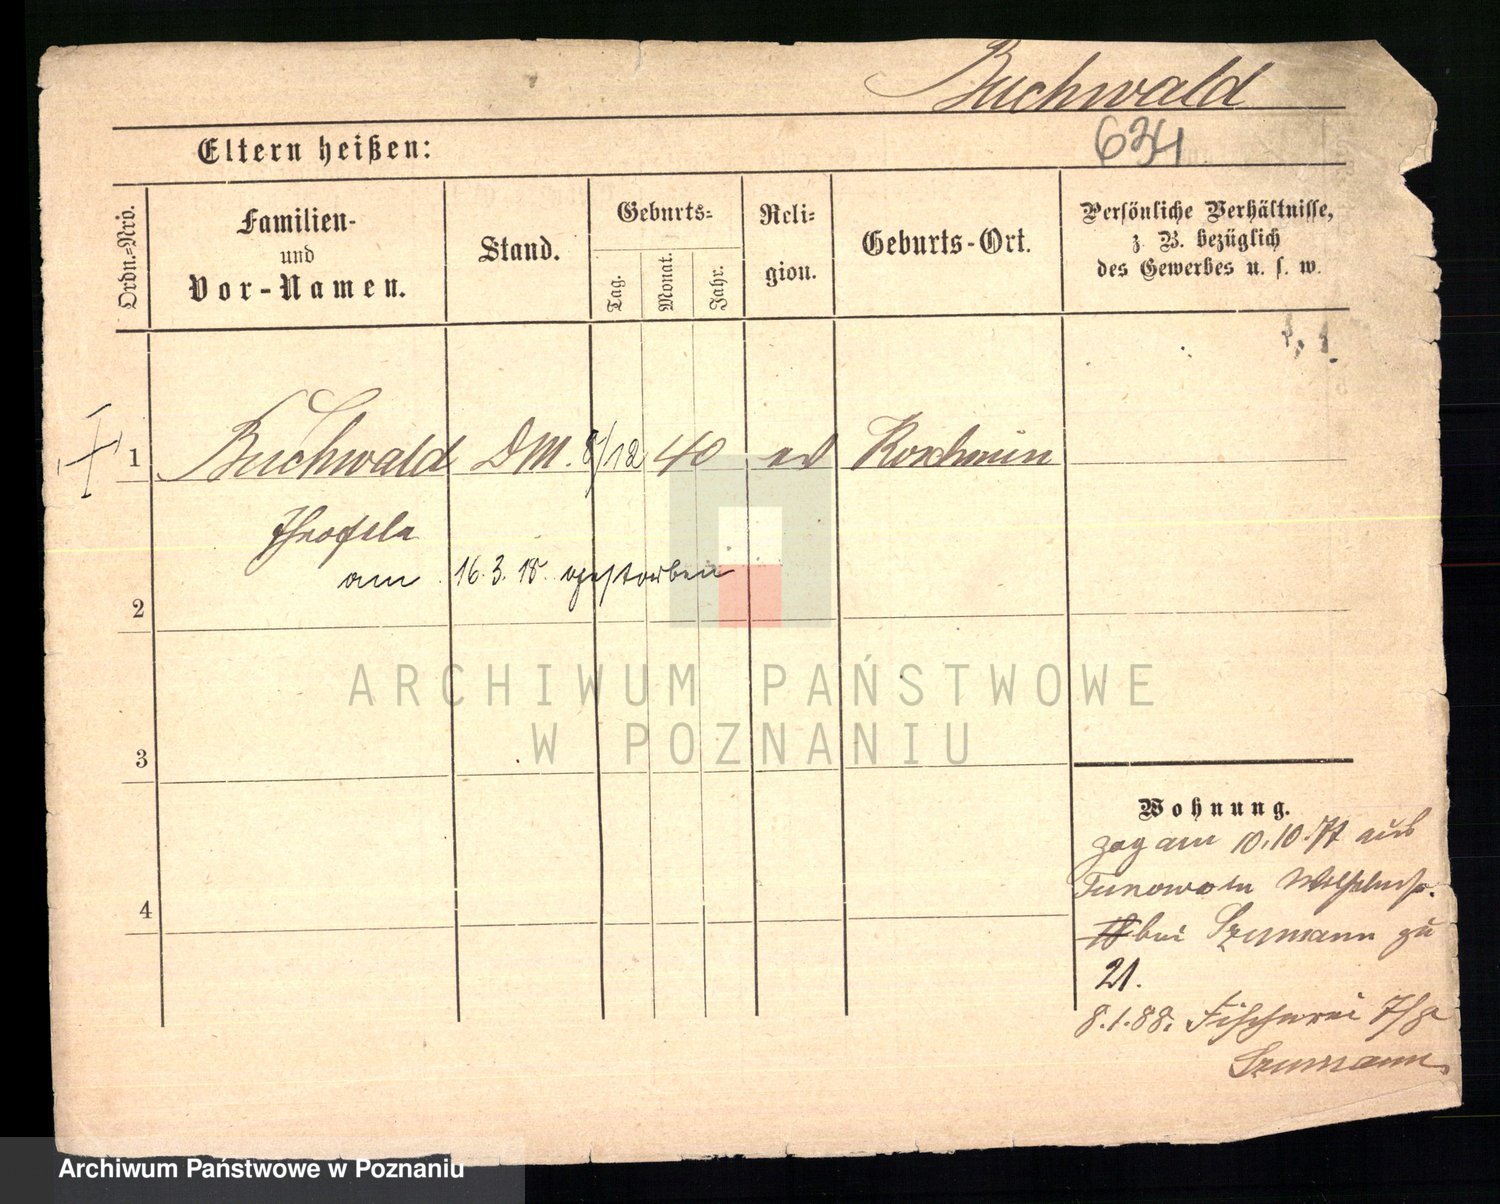 Buchwald
634
Eltern heißen:
Ordn.-Nro.
Familien-
und
Vor-Namen.
Stand.
Geburts=
Tag.
Monat.
Jahr.
Reli=
gion.
Geburts-Ort.
Persönliche Verhältnisse,
z. B. bezüglich
des Gewerbes u. s. w.
1 Buchwald DM. 8/12 40 ev
am 16.3.18. gestorben
2
ARCHIWUM PAŃSTWOWE
W POZNANIU
3
Wohnung.
zog am 10.10.77 aus
4
bei Szumann zu
21.
8.1.88. Fischerei
Szumann
Archiwum Państwowe w Poznaniu